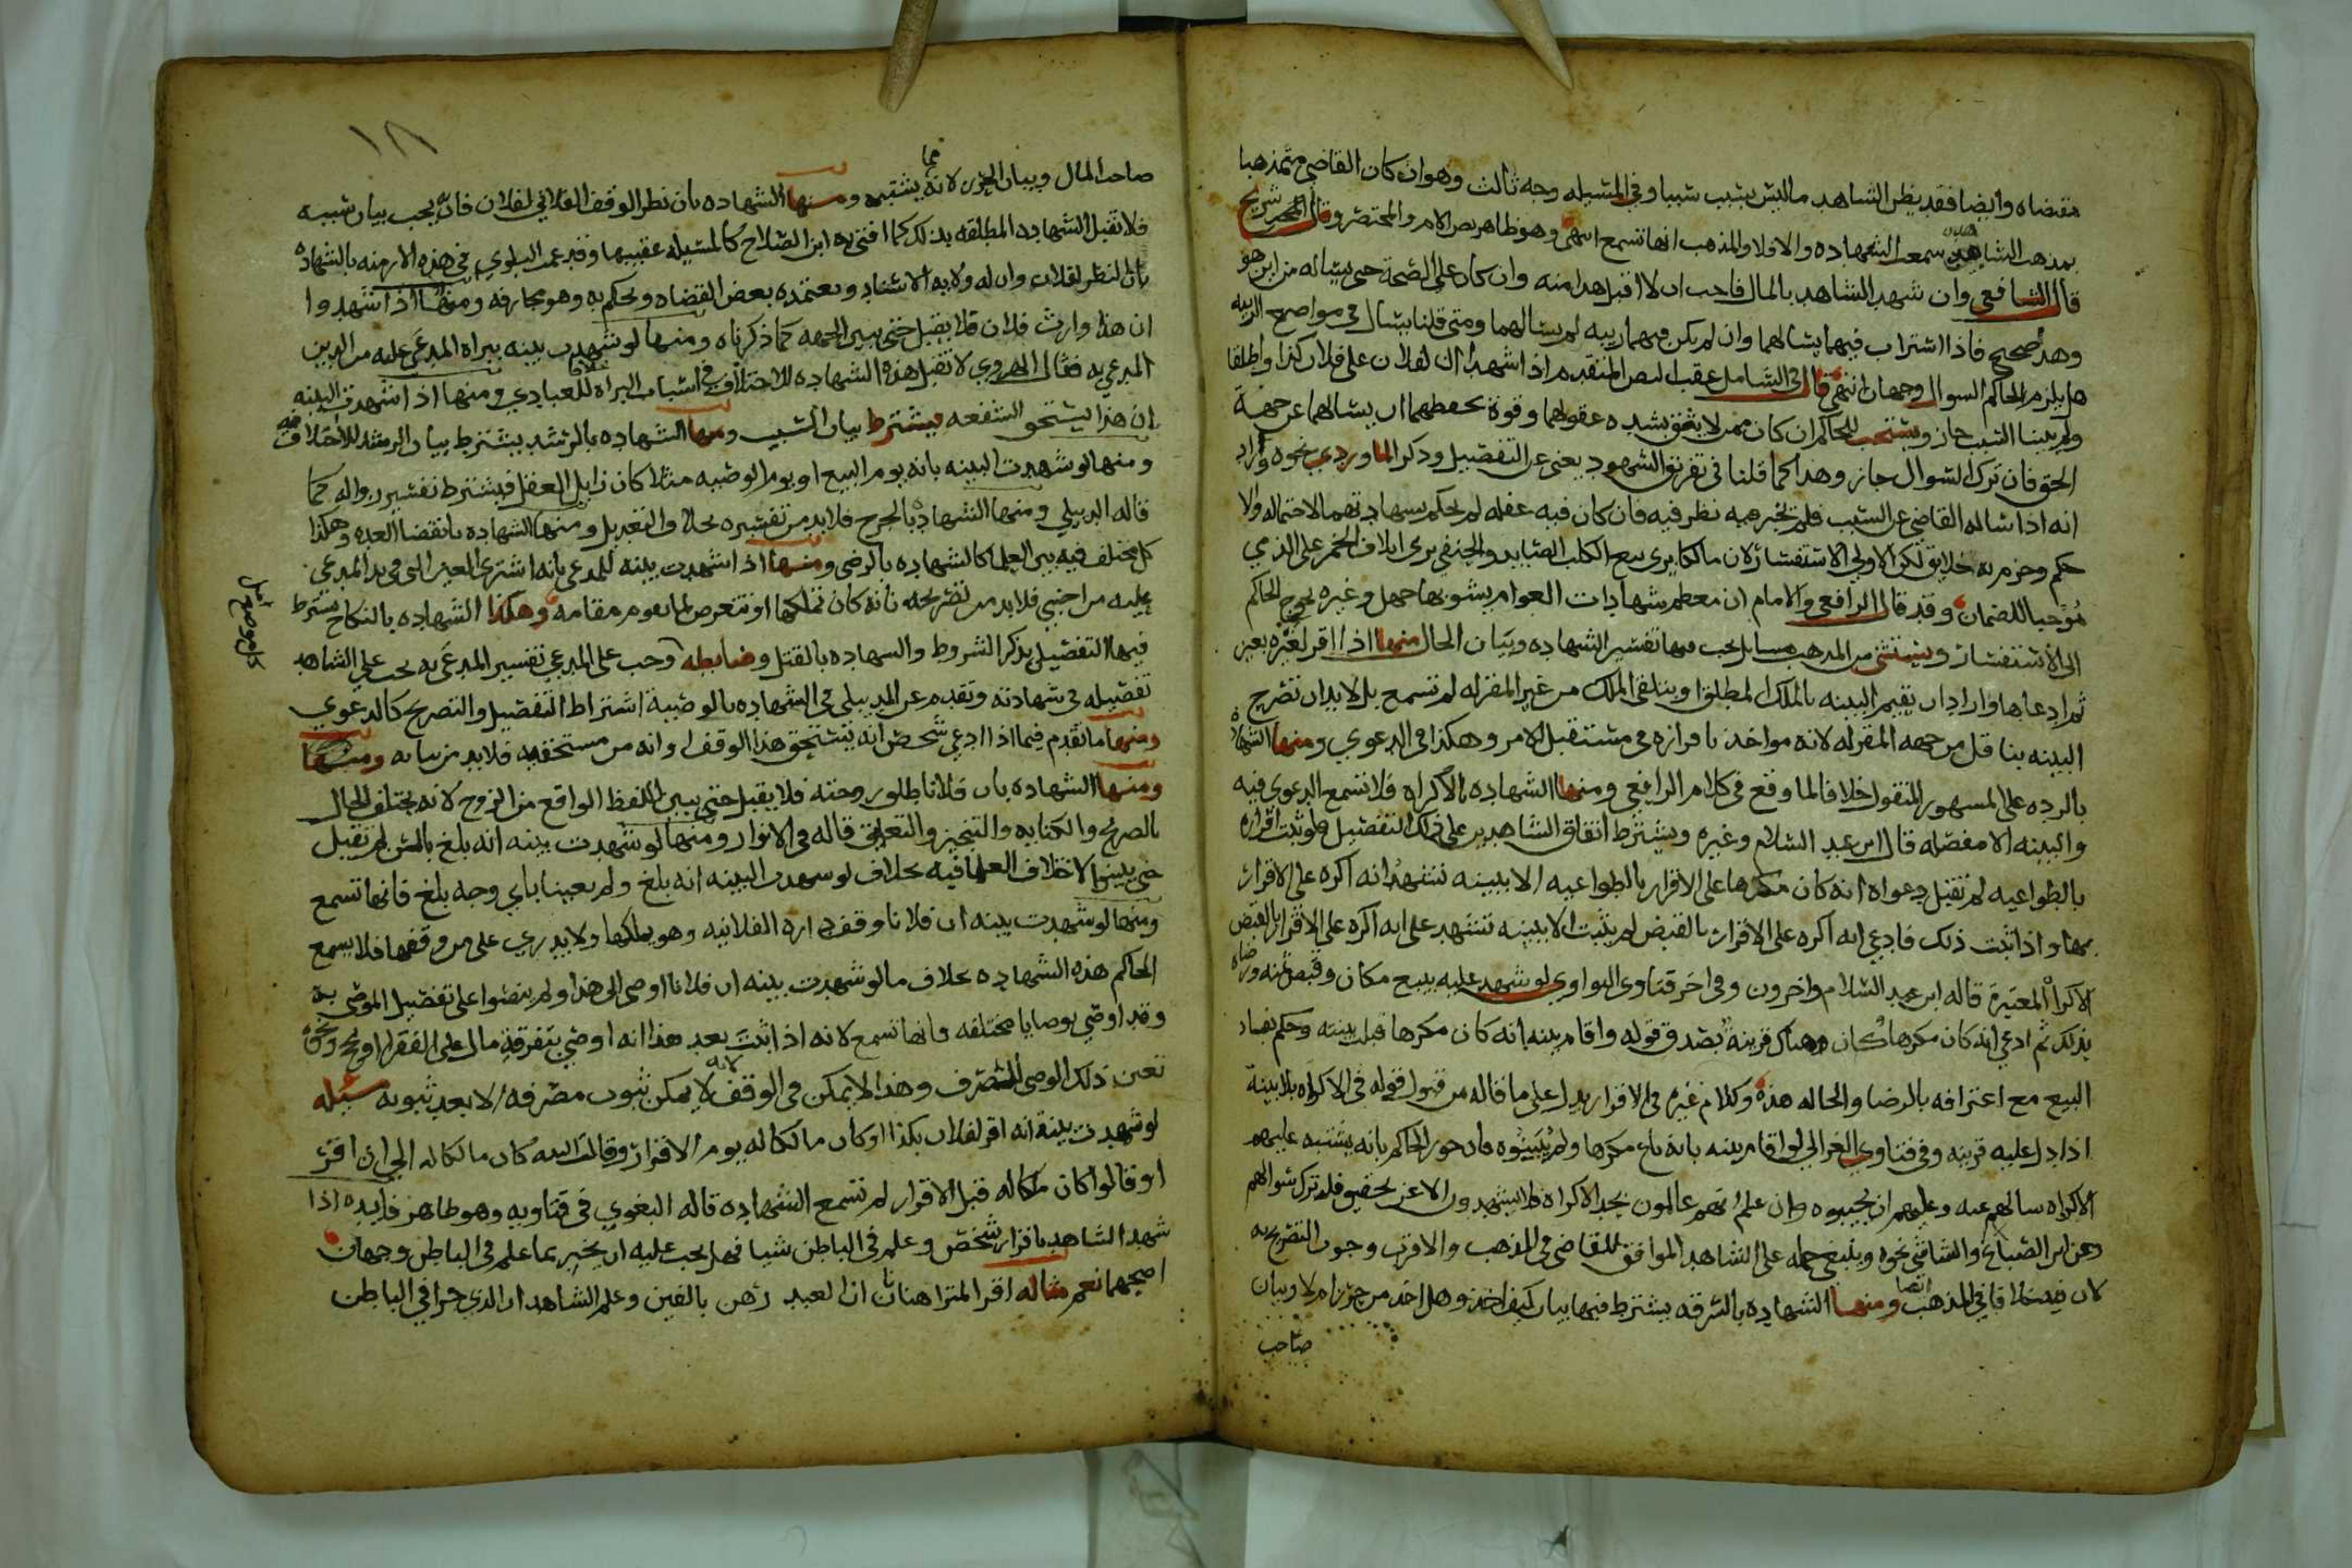 مقتضاه وايضا فقد يظن الشاهد ما ليس بسبب سببا وفي المسيله وجه ثالث وهو ان كان القاضي متمذهبا
بمذهب الشاهد سمعت الشهاده والا فلا والمذهب انها تسمع انتهى وهو ظاهر نص الام والمختصر وقال شريح
قال الشافعي وان شهد الشاهد بالمال فاحب ان لا اقبل هذا منه وان كان على الصحة حتى يساله من اين هو
وهذا صحيح فاذا استراب فيهما يسالهما وان لم يكن فيهما ريبه لم يسالهما ومتى قلنا يسال في مواضع الريبه
هل يلزم الحاكم السوال وجهان انتهى قال في الشامل عقب النص المتقدم اذا شهدا ان لفلان على فلان كذا واطلقا
ولم يبينا السبب جاز ويستحب للحاكم ان كان ممن لا يثق بشده عقولهما وقوة تحفظهما ان يسالهما عن جهة
الحق فان ترك السوال جاز وهذا كما قلنا في تفريق الشهود يعني عن التفصيل وذكر الماوردي نحوه وزاد
انه اذا ساله القاضي عن السبب فلم يخبر به نظر فيه فان كان فيه غفله لم يحكم بشهادتهما لاحتماله ولا
حكم وجزم به خلايق لكن الاولى الاستفسار لان مالكا يرى بيع الكلب الصايد والحنفي يرى اتلاف الخمر على الذمي
موجبا للضمان وقد قال الرافعي والامام ان معظم شهادات العوام يشوبها جهل وغيره يحوج الحاكم
الى الاستفسار ويستثنى من المذهب مسايل يجب فيها تفسير الشهاده وبيان الحال منها اذا اقر لغيره بعين
ثم ادعاها واراد ان يقيم البينه بالملك المطلق او بتلقي الملك من غير المقر له لم تسمع بل لا بد ان تصرح
البينه بناقل من جهه المقر له لانه مواخذ باقراره في مستقبل الامر وهكذا في الدعوي ومنها الشهاده
بالرده على المشهور المنقول خلافا لما وقع في كلام الرافعي ومنها الشهاده بالاكراه فلا تسمع الدعوى فيه
والبينه الا مفصله قال ابن عبد السلام وغيره ويشترط اتفاق الشاهدين على ذلك التفصيل فلو ثبت اقراره
بالطواعيه لم تقبل دعواه انه كان مكرها على الاقرار بالطواعيه الا ببينه تشهد انه اكره على الاقرار
بها واذا ثبت ذلك فادعى انه اكره على الاقرار بالقبض لم يثبت الا ببينه تشهد على انه اكره على الاقرار بالقبض
الاكراه المعتبرة قاله ابن عبد السلام واخرون وفي اخر فتاوى النواوي لو شهد عليه ببيع مكان وقبض ثمنه ورضاه
بذلك ثم ادعى انه كان مكرها وكان هناك قرينة تصدق قوله واقام بينه انه كان مكرها قبلت بينته وحكم بفساد
البيع مع اعترافه بالرضا والحاله هذه وكلام غيره في الاقرار يدل على ما قاله من قبول قوله في الاكراه بلا بينة
اذا دل عليه قرينه وفي فتاوي الغزالي لو اقام بينه بانه باع مكرها ولم يبينوه فان جوز الحاكم بانه يشتبه عليهم
الاكراه سالهم عنه وعليهم ان يجيبوه وان علم انهم عالمون بحد الاكراه فلا يشهدون الا عن تحقيق فله ترك سوالهم
وعن ابن الصباغ والشاشي نحوه وينبغي حمله على الشاهد الموافق للقاضي في المذهب والاقرب وجوب التصريح به
لان فيه خلافا في المذهب ايضا ومنها الشهاده بالسرقه يشترط فيها بيان كيف اخذ وهل اخذ من حرز ام لا وبيان
صاحب
١٨١
صاحب المال وبيان الحرز لانه مما يشتبه ومنها الشهاده بان نظر الوقف الفلاني لفلان فانه يجب بيان سببه
فلا تقبل الشهاده المطلقه بذلك كما افتى به ابن الصلاح كالمسيله عقبيها وقد عمت البلوي في هذه الازمنه بالشهاده
بان النظر لفلان وان له ولايه الاسناد ويعتمده بعض القضاه ويحكم به وهو مجازفه ومنها اذا شهدوا
ان هذا وارث فلان فلا يقبل حتى يبين الجهه كما ذكرناه ومنها لو شهدت بينه ببراه المدعى عليه من الدين
المدعي به فقال الهروي لا تقبل هذه الشهاده للاختلاف في اسباب البراه خلافا للعبادي ومنها اذا شهدت البينه
ان هذا يستحق الشفعه يشترط بيان السبب ومنها الشهاده بالرشد يشترط بيان الرشد للاختلاف فيه
ومنها لو شهدت البينه بانه يوم البيع او يوم الوصيه مثلا كان زايل العقل فيشترط تفسير زواله كما
قاله الدبيلي ومنها الشهاده بالجرح فلا بد من تفسيره بخلاف التعديل ومنها الشهاده بانقضا العده وهكذا
كل مختلف فيه بين العلما كالشهاده بالرضى ومنها اذا شهدت بينه للمدعي بانه اشترى العين التي في يد المدعى
عليه من اجنبي فلا بد من تصريحه بانه كان تملكها او تتعرض لما يقوم مقامه وهكذا الشهاده بالنكاح يشترط
فيها التفصيل بذكر الشروط والشهاده بالقتل وضابطه وجب على المدعي تفسير المدعى به يجب على الشاهد
تفصيله في شهادته وتقدم عن الدبيلي في الشهاده بالوصية اشتراط التفصيل والتصريح كالدعوي
ومنها ما تقدم فيما اذا ادعى شخص انه يستحق هذا الوقف او انه من مستحقيه فلا بد من بيانه ومنها
ومنها الشهاده بان فلانا طلق زوجته فلا يقبل حتى يبين اللفظ الواقع من الزوج لانه يختلف الحال
بالصريح والكنايه والتنجيز والتعليق قاله في الانوار ومنها لو شهدت بينه انه بلغ بالسن لم تقبل
حتى يبين الاختلاف العلما فيه بخلاف لو شهدت البينه انه بلغ ولم يعينا باي وجه بلغ فانها تسمع
ومنها لو شهدت بينه ان فلانا وقف داره الفلانيه وهو يملكها ولا يدري على من وقفها فلا يسمع
الحاكم هذه الشهاده بخلاف ما لو شهدت بينه ان فلانا اوصى الى هذا ولم ينصوا على تفصيل الموصى به
وقد اوصى بوصايا مختلفه فانها تسمع لانه اذا ثبت بعد هذا انه اوصى بتفرقة مال على الفقرا ونحوه
تعين ذلك الوصي للتصرف وهذا لا يمكن في الوقف لانه لا يمكن ثبوت مصرفه الا بعد ثبوته مسئله
لو شهدت بينة انه اقر لفلان بكذا او كان مالكا له يوم الاقرار وقالت البينه كان مالكا له الى ان اقر
او قالوا كان ملكا له قبل الاقرار لم تسمع الشهاده قاله البغوي في فتاويه وهو ظاهر فايده اذا
شهد الشاهد باقرار شخص وعلم في الباطن شيا فهل يجب عليه ان يخبر بما علم في الباطن وجهان
اصحهما نعم مثاله اقر المتراهنان ان العبد رهن بالفين وعلم الشاهد ان الذي جرا في الباطن